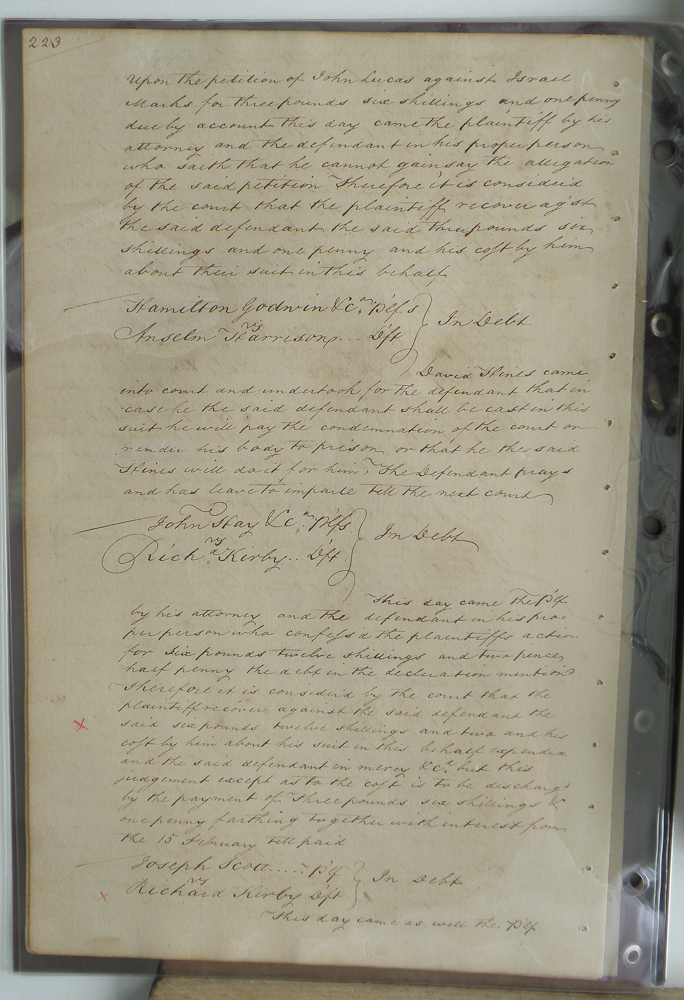 223
Upon the petition of John Lucas against Israel
Marks for three pounds six shillings and one penny
due by account this day came the plaintiff by his
attorney and the defendant in his proper person
who saith that he cannot gainsay the allegation
of the said petition Therefore it is consider'd
by the court that the plaintiff recover ag'st
the said defendant the said three pounds six
shillings and one penny and his cost by him
about their suit in this behalf
Hamilton Godwin &c. Plf's
vs In Debt
Anselm Harrison... Dft
David Hines came
into court and undertook for the defendant that in
case he the said defendant shall be cast in this
suit he will pay the condemnation of the court or
render his body to prison or that he the said
Hines will do it for him, The Defendant prays
and has leave to imparle till the next court
John Hay &c. Plfs
vs In Debt
Rich'd Kirby.. Dft
This day came the Plf
by his attorney and the defendant in his pro
per person who confess'd the plaintiffs action
for Six pounds twelve shillings and two pence
half penny the debt in the declaration mention'd
Therefore it is consider'd by the court that the
plaintiff recover against the said defendant the
said six pounds twelve shillings and two and his
cost by him about his suit in this behalf expended
and the said defendant in mercy &c. but this
judgement except as to the cost is to be discharg'd
by the payment of Three pounds six shillings &
one penny farthing together with interest from
the 15 February till paid
Joseph Scott..... Plf
vs In Debt
Richard Kirby Dft
This day came as well the Plf